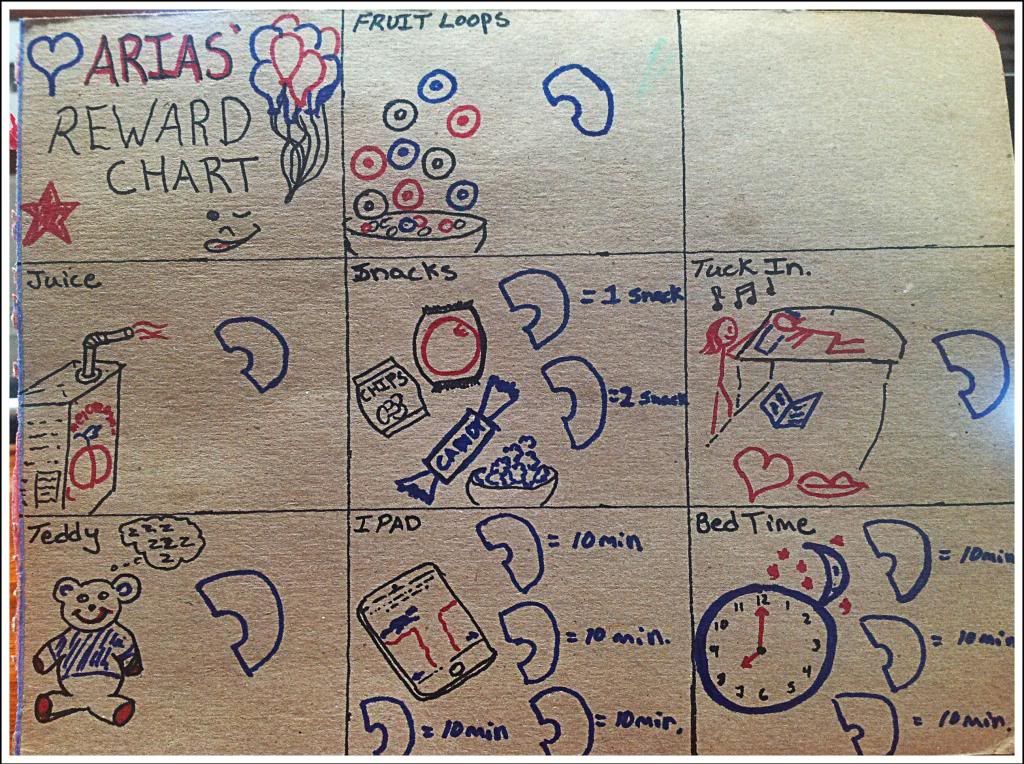 ARIAS'
REWARD
CHART
FRUIT LOOPS
Juice
Snacks
= 1 snack
CHIPS
=2 snack
CANDY
Tuck In.
Teddy
zzz
zzz
z
IPAD
= 10min
= 10 min.
= 10min
= 10min.
Bed Time
= 10min
= 10min
= 10min.
11 12 1
10 2
9 3
8 4
7 6 5